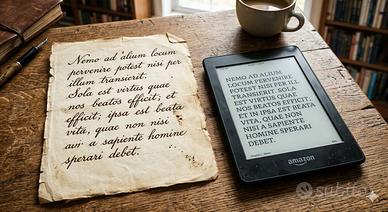 Nemo ad alium locum
pervenire potest nisi per
illum transierit.
Sola est virtus quae
nos beatos efficit; et
efficit; ipsa est beata
vita, quae non nisi
a sapiente homine
sperari debet.
NEMO AD ALIUM
LOCUM PERVENIRE
POTEST NISI PER ILL
TRANSIERIT. SOLA
EST VIRTUS QUAE
NOS BEATOS EFFICIT;
ET IN IPSA EST BEATA
VITA, QUAE NON
NISI A SAPIENTE
HOMINE SPERARI
DEBET.
amazon
subito